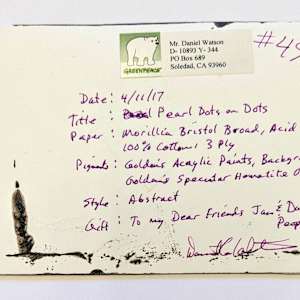 Mr. Daniel Watson
D- 10893 Y- 344
PO Box 689
Soledad, CA 93960
GREENPEACE
#49
Date: 4/11/17
Title: Pearl Dots on Dots
Paper: Morillia Bristol Broad, Acid
100% Cotton! 3 Ply
Pigments: Golden's Acrylic Paints, Backgr
Golden's Specular Hematite O
Style: Abstract
Gift: To my Dear Friends Jan & Da
Peop